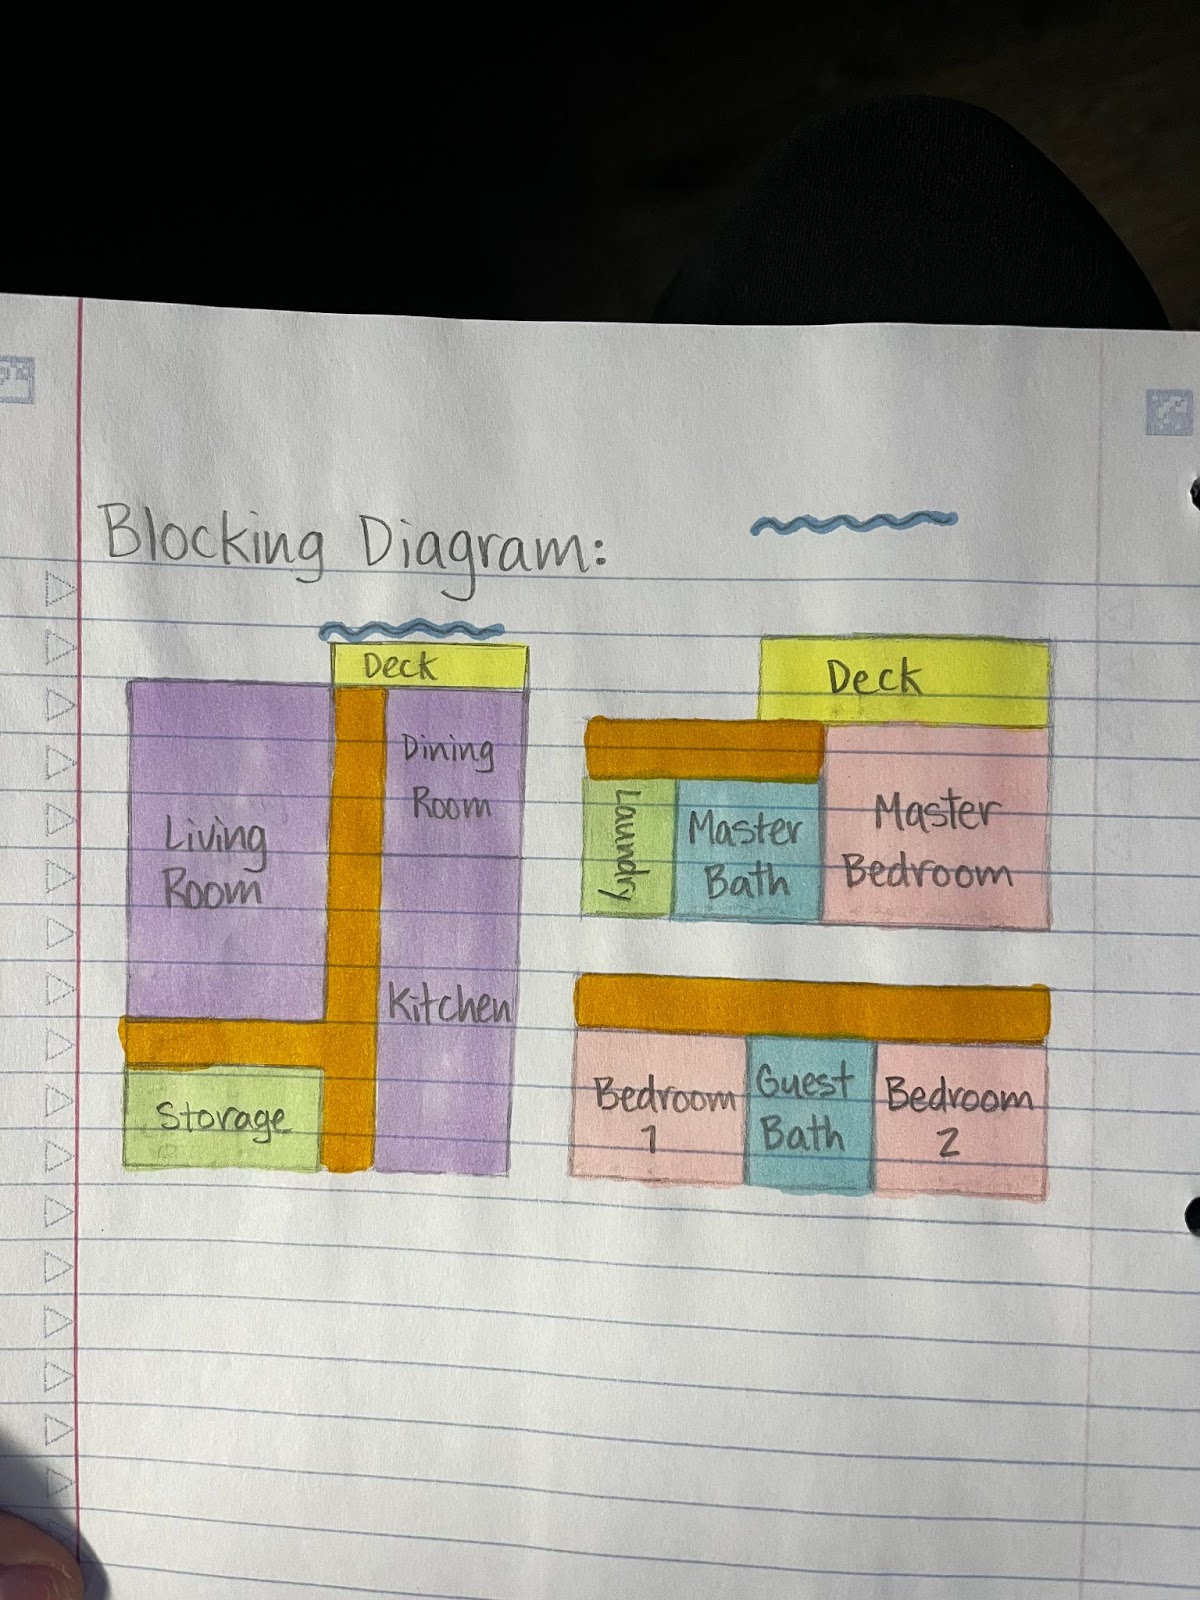 Blocking Diagram:
Deck
Living
Room
Dining
Room
Kitchen
Storage
Deck
Laundry
Master
Bath
Master
Bedroom
Bedroom
1
Guest
Bath
Bedroom
2